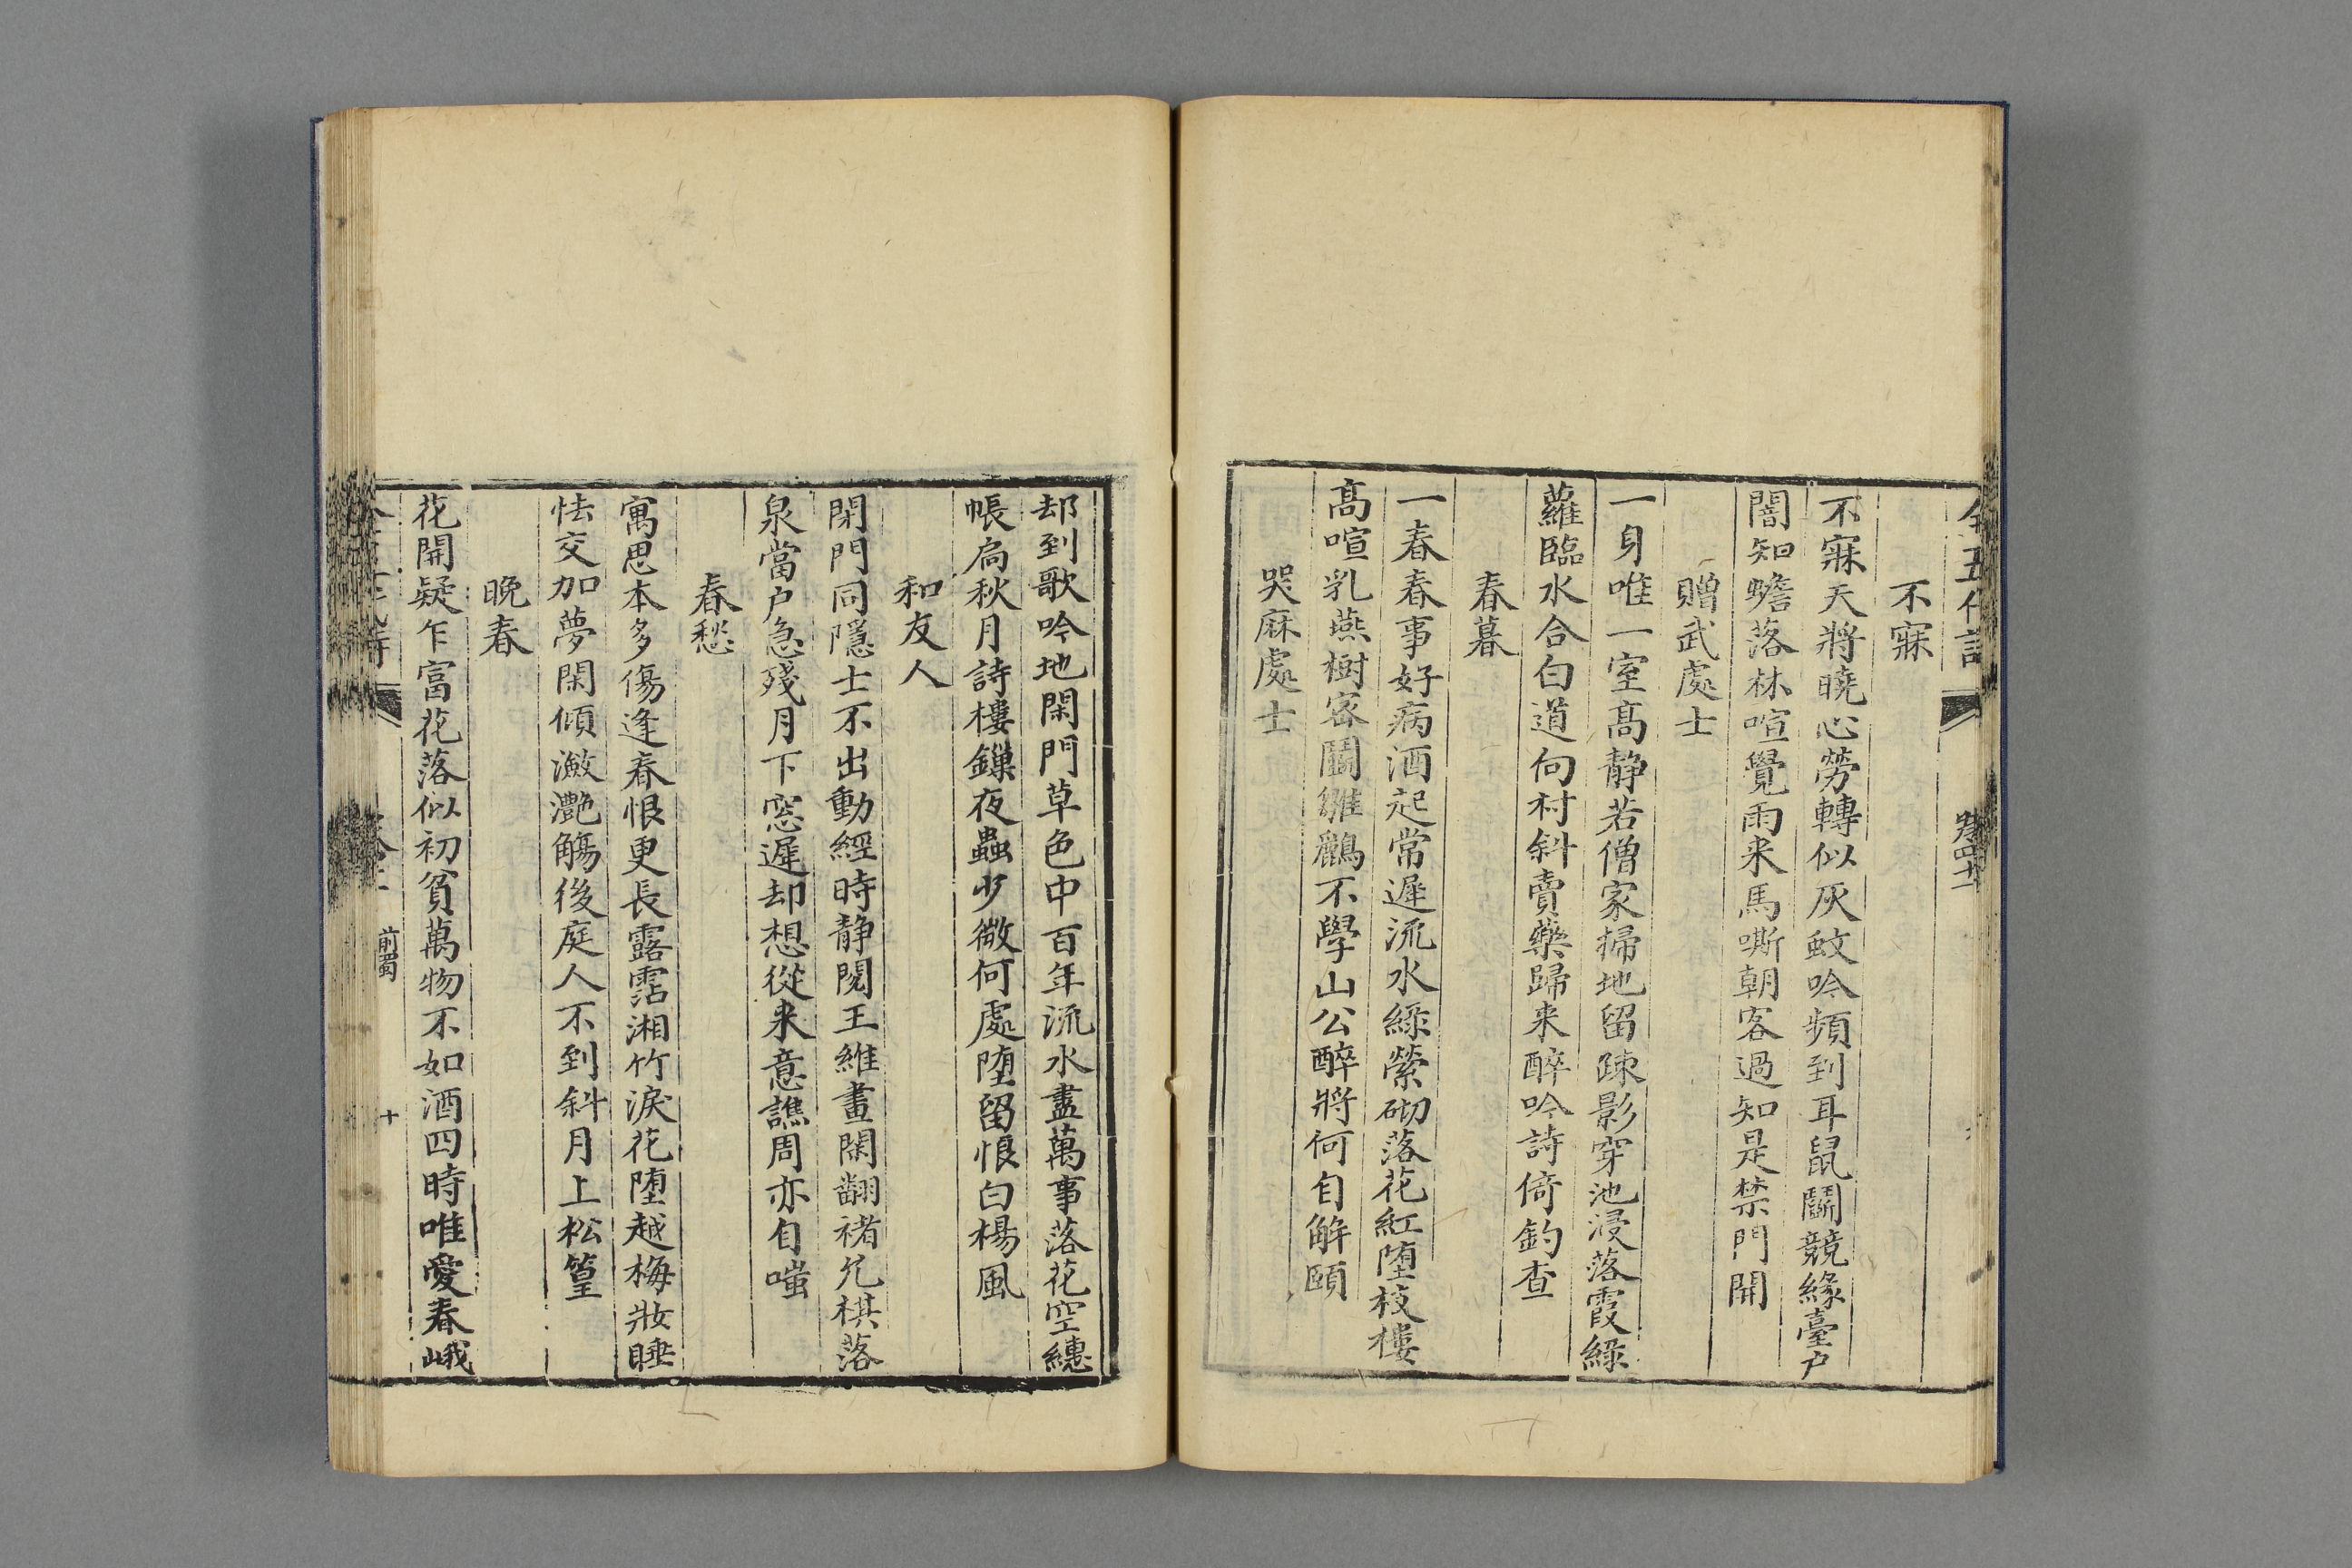 不寐
不寐天將曉心勞轉似灰蚊吟頻到耳鼠鬭競緣臺户
闇知蟾落林喧覺雨来馬嘶朝客過知是禁門開
贈武處士
一身唯一室高静若僧家掃地留踈影穿池浸落霞綠
蘿臨水合白道向村斜賣藥歸来醉吟詩倚釣查
春暮
一春春事好病酒起常遲流水綠縈砌落花紅堕枝樓
高喧乳燕樹密鬭雛鸝不學山公醉將何自解頤
哭麻處士
却到歌吟地閑門草色中百年流水盡萬事落花空繐
帳扃秋月詩樓鏁夜蟲少微何處堕留恨白楊風
和友人
閉門同隱士不出動經時静閱王維畫閑翻褚允棋落
泉當户急殘月下窓遲却想從来意譙周亦自嗤
春愁
寓思本多傷逢春恨更長露霑湘竹淚花堕越梅妝睡
怯交加夢閑傾瀲灧觴後庭人不到斜月上松篁
晚春
花開疑乍富花落似初貧萬物不如酒四時唯愛春峨
前蜀
十